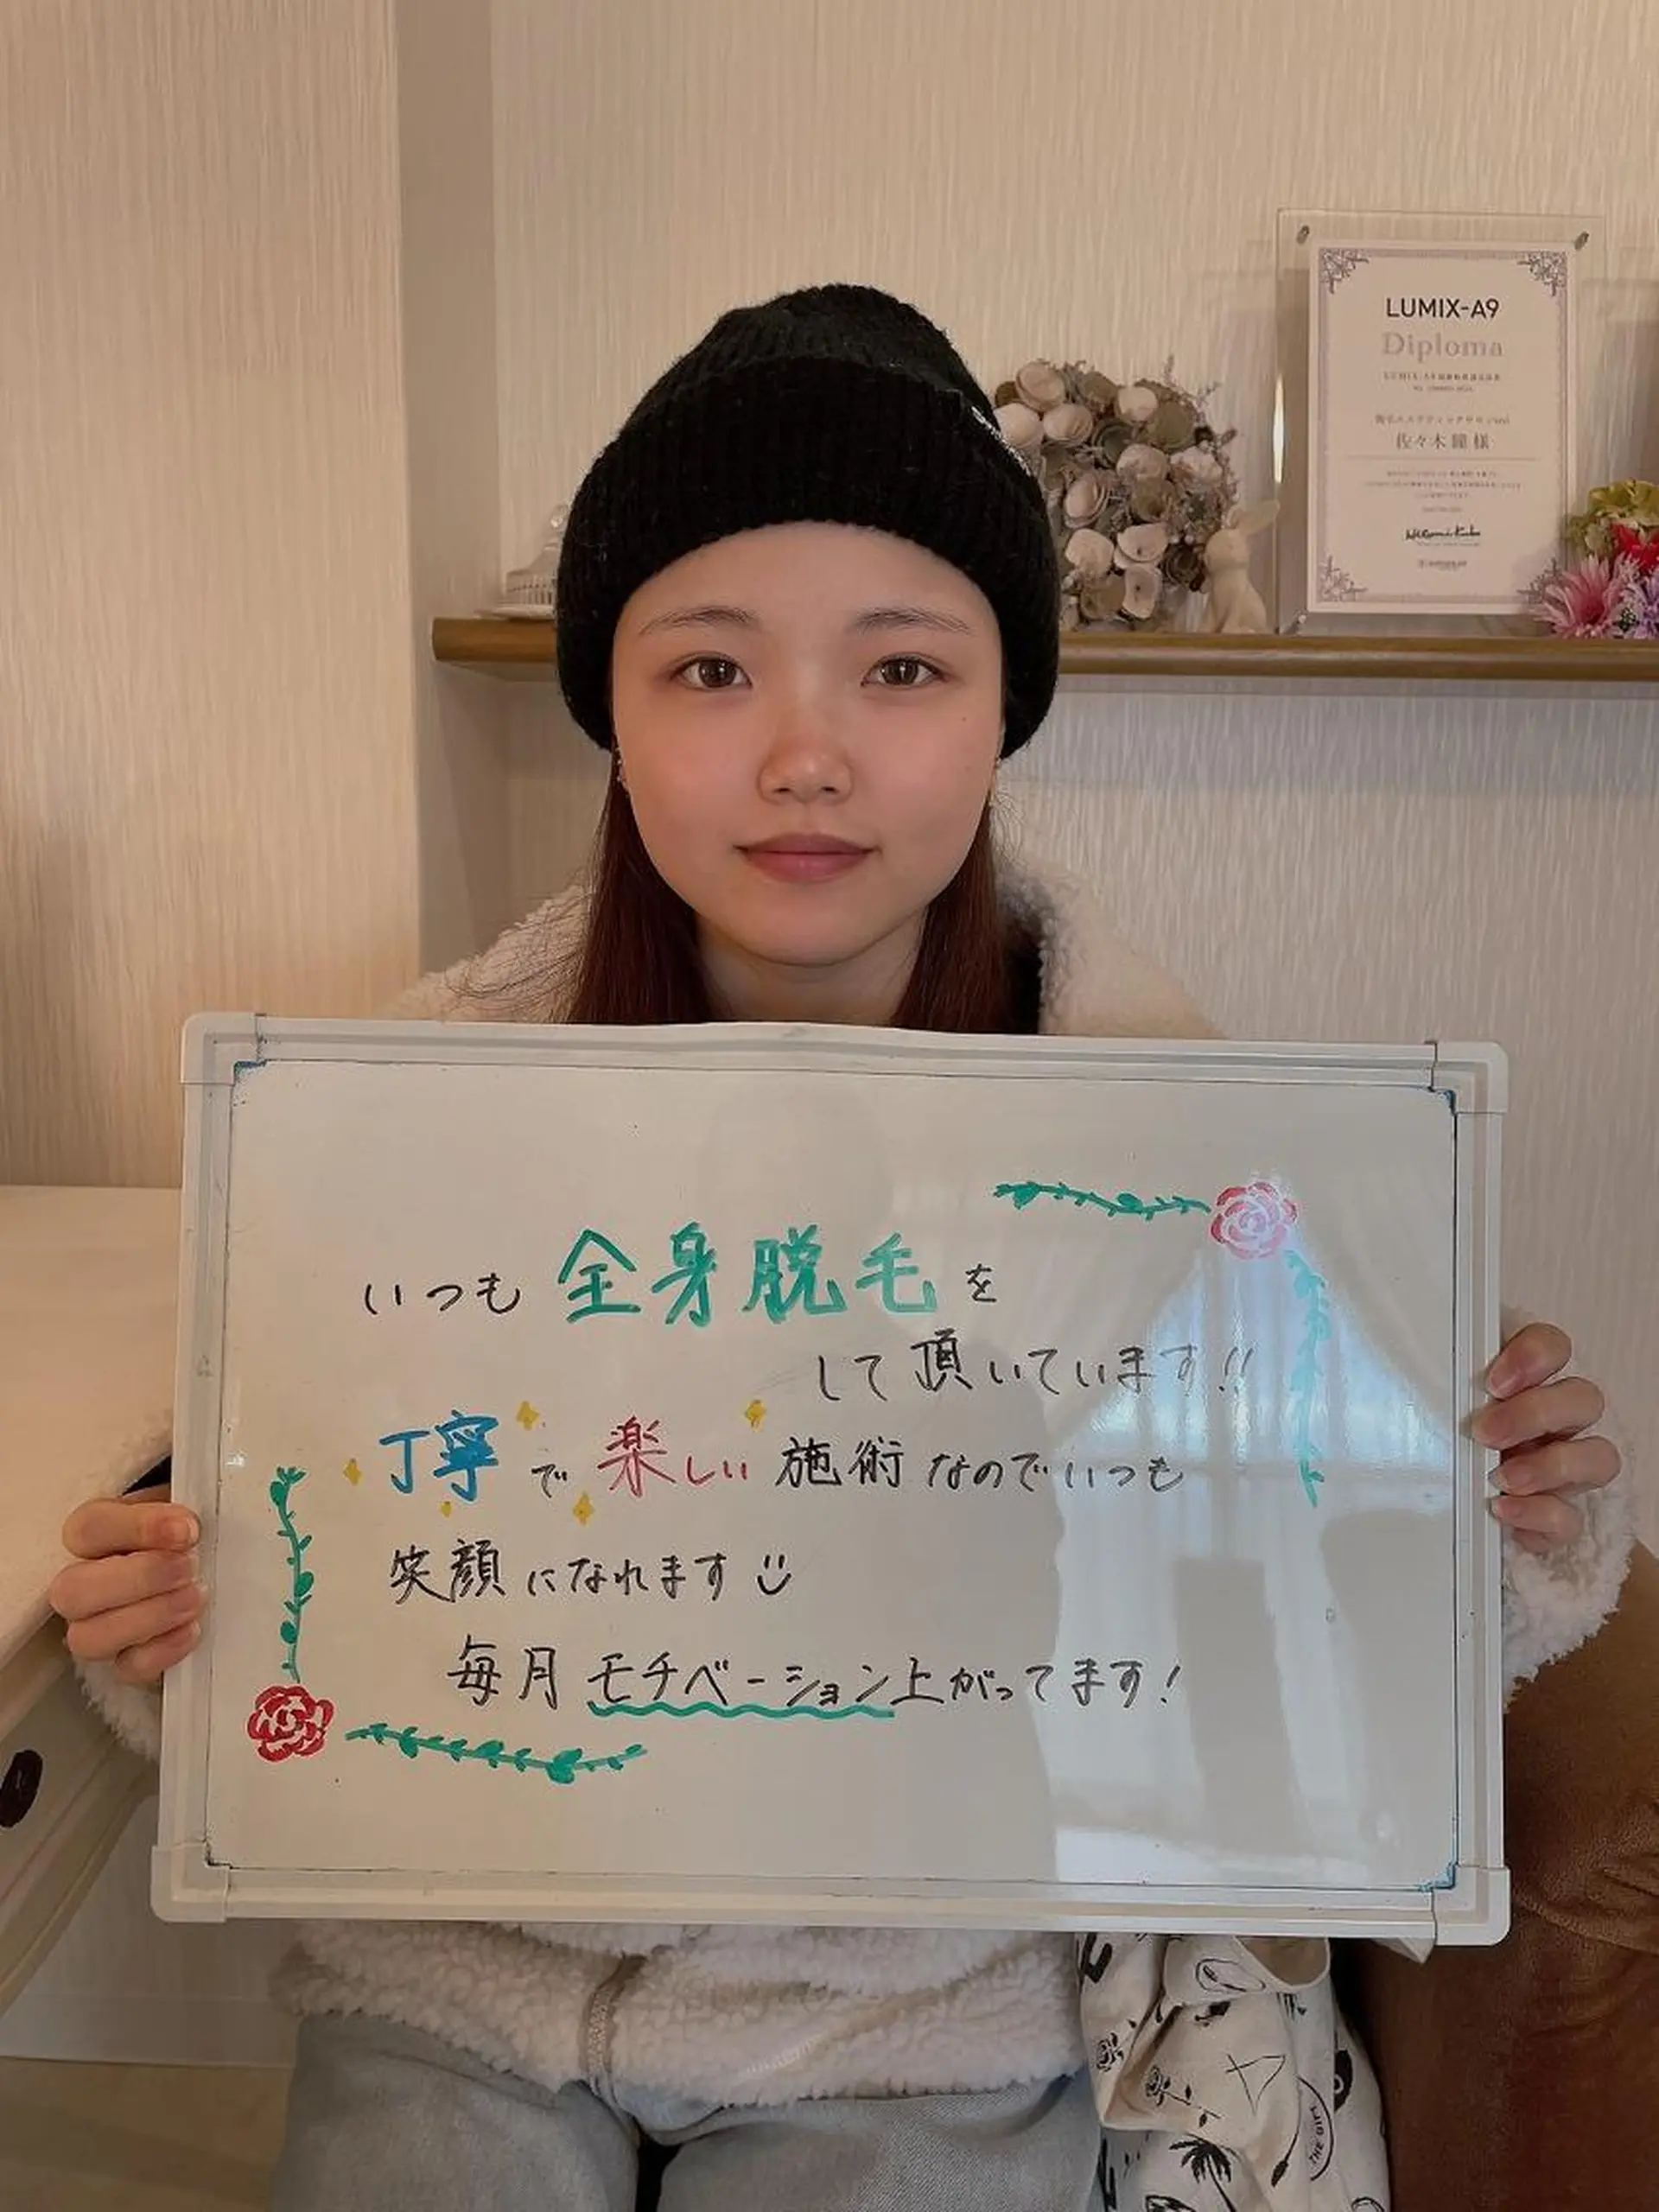 LUMIX-A9
Diploma
佐々木 瞳 様
いつも 全身脱毛 を
して頂いています!!
丁寧で楽しい施術なのでいつも
笑顔になれます
毎月モチベーション上がってます!
THE GIFT